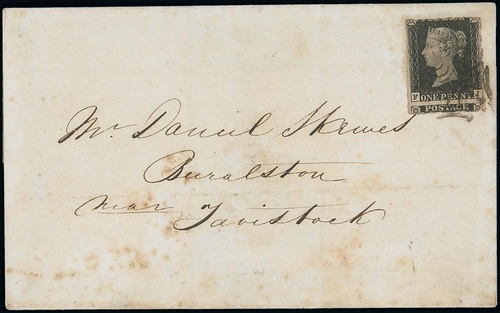 Mr Daniel Skewes
Buralston
near Tavistock
ONE PENNY
POSTAGE